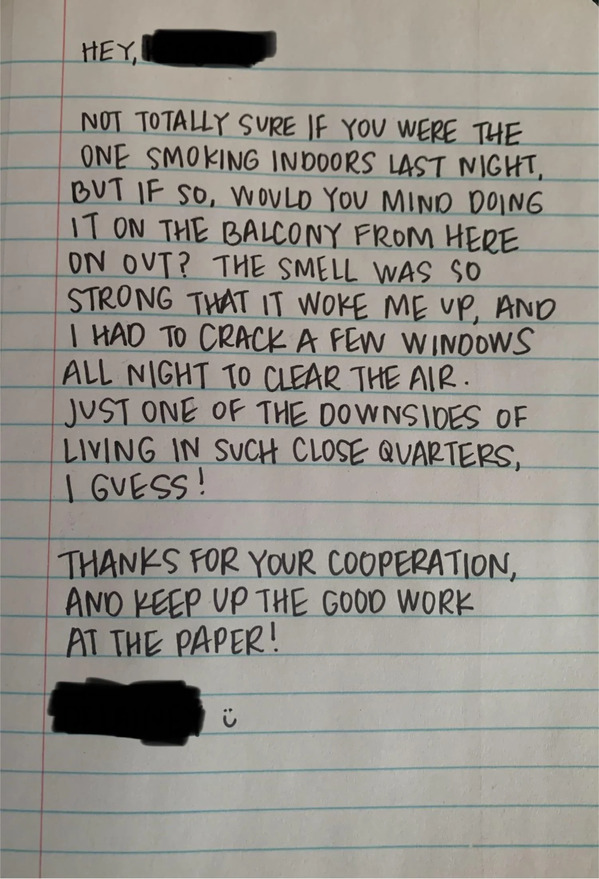 HEY,
NOT TOTALLY SURE IF YOU WERE THE
ONE SMOKING INDOORS LAST NIGHT,
BUT IF SO, WOULD YOU MIND DOING
IT ON THE BALCONY FROM HERE
ON OUT? THE SMELL WAS SO
STRONG THAT IT WOKE ME UP, AND
I HAD TO CRACK A FEW WINDOWS
ALL NIGHT TO CLEAR THE AIR.
JUST ONE OF THE DOWNSIDES OF
LIVING IN SUCH CLOSE QUARTERS,
I GUESS!
THANKS FOR YOUR COOPERATION,
AND KEEP UP THE GOOD WORK
AT THE PAPER!